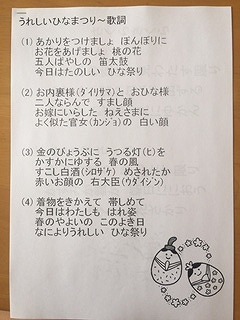 うれしいひなまつり～歌詞
(1) あかりをつけましょ　ぼんぼりに
お花をあげましょ　桃の花
五人ばやしの　笛太鼓
今日はたのしい　ひな祭り
(2) お内裏様(ダイリサマ)と　おひな様
二人ならんで　すまし顔
お嫁にいらした　ねえさまに
よく似た官女(カンジョ)の　白い顔
(3) 金のびょうぶに　うつる灯(ヒ)を
かすかにゆする　春の風
すこし白酒(シロザケ)　めされたか
赤いお顔の　右大臣(ウダイジン)
(4) 着物をきかえて　帯しめて
今日はわたしも　はれ姿
春のやよいの　このよき日
なによりうれしい　ひな祭り